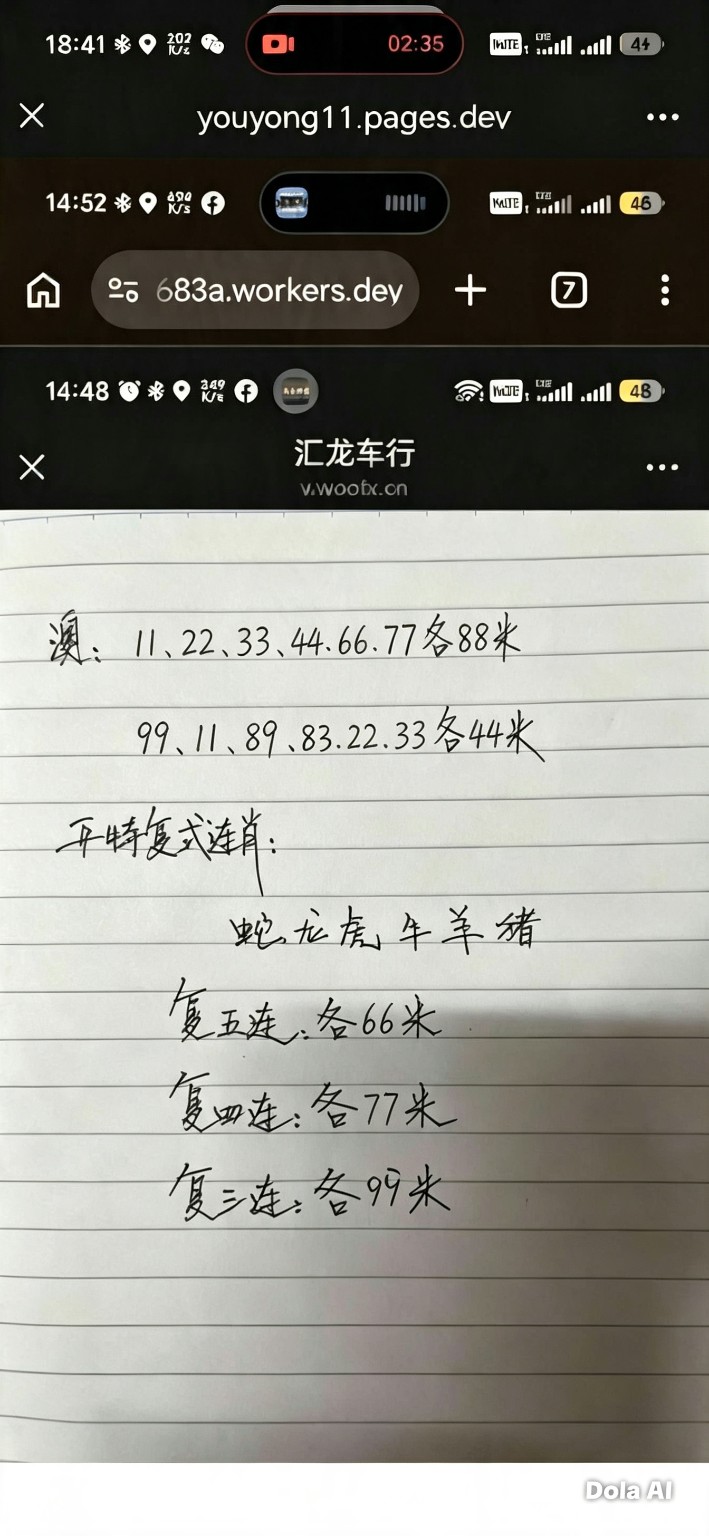 18:41 202 K/s 02:35 VoLTE 44
youyong11.pages.dev
14:52 K/s VoLTE 46
683a.workers.dey 7
14:48 349 VoLTE 48
汇龙车行
v.woofx.cn
澳：11、22、33、44.66.77各88米
99、11、89、83.22.33各44米
平特复式连肖：
蛇龙虎牛羊猪
复五连：各66米
复四连：各77米
复三连：各99米
Dola AI